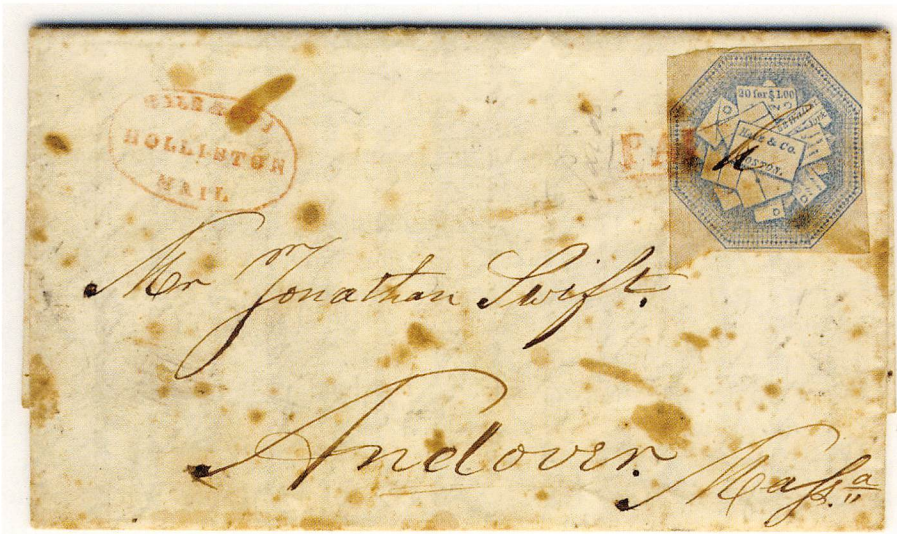 HOLLISTON
MAIL
PAI
20 for $1.00
Hale & Co.
BOSTON.
Mr Jonathan Swift.
Andover.
Massa